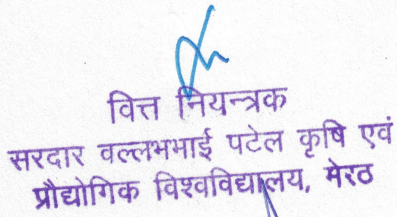 वित्त नियन्त्रक
सरदार वल्लभभाई पटेल कृषि एवं
प्रौद्योगिक विश्वविद्यालय, मेरठ